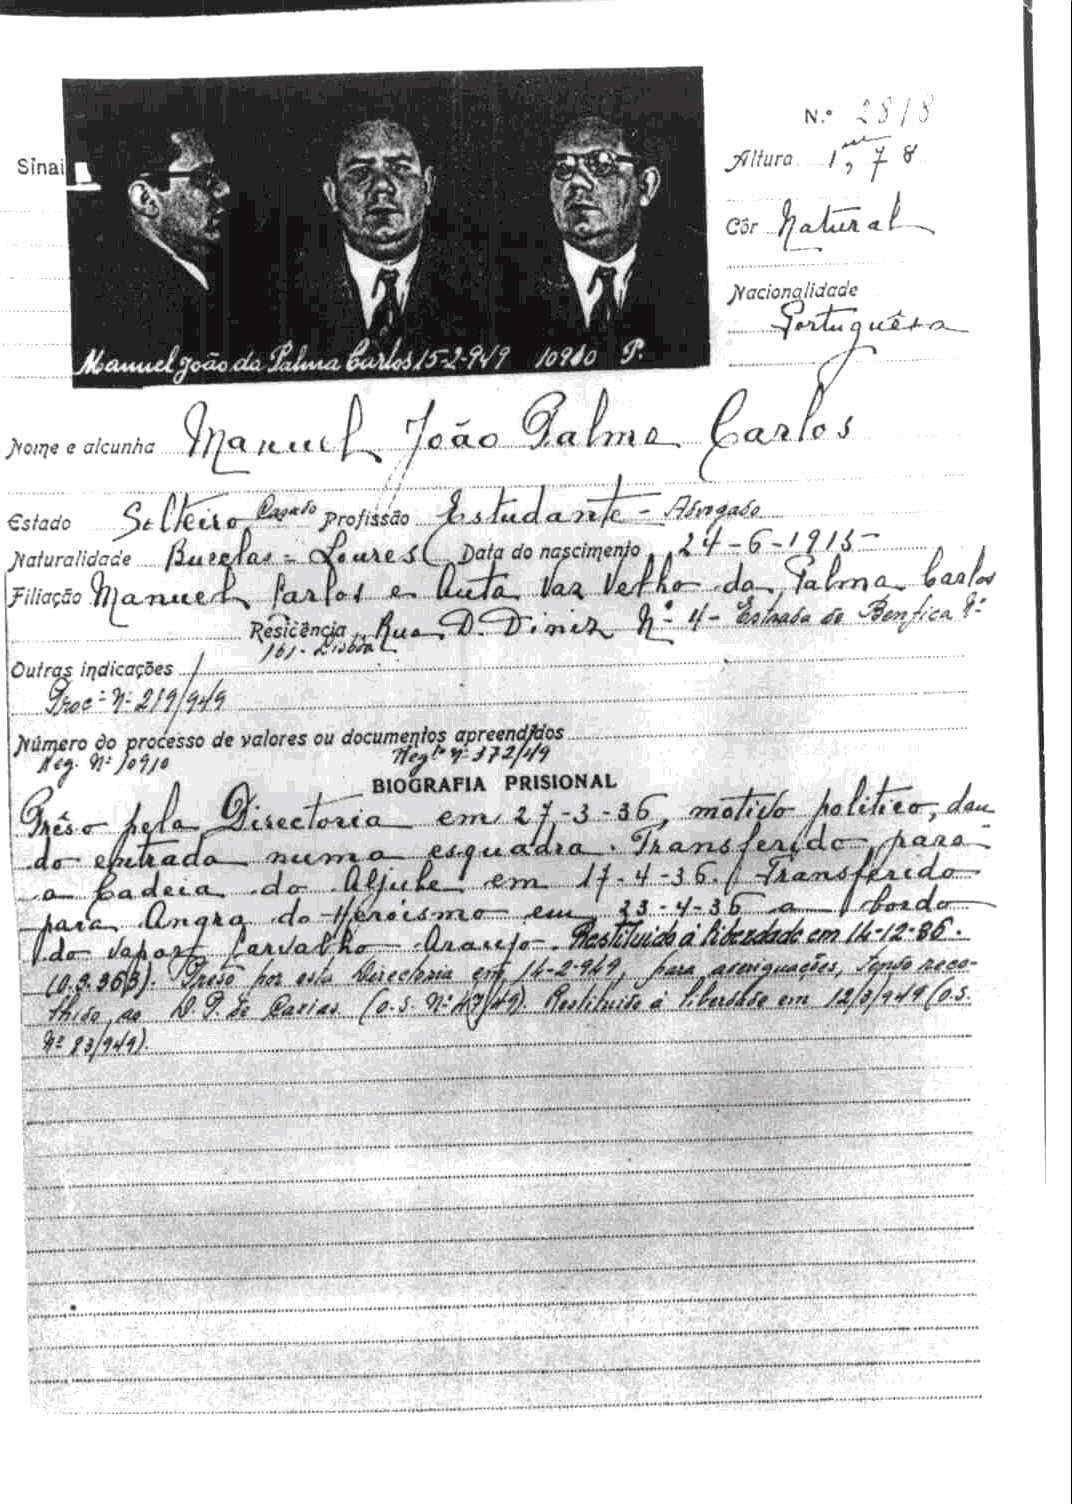 N.º 2818
Sinai
Altura 1,m 78
Côr Natural
Nacionalidade
Portuguêsa
Manuel João da Palma Carlos 15-2-949 10910 P.
Nome e alcunha Manuel João Palma Carlos
Estado Solteiro Casado Profissão Estudante - Advogado
Naturalidade Bucelas - Loures Data do nascimento 24-6-1915-
Filiação Manuel Carlos e Auta Vaz Velho da Palma Carlos
Residência Rua D. Diniz Nº 4 - Estrada de Benfica Nº
161 - Lisboa
Outras indicações /
Proc.º Nº 219/949
Número do processo de valores ou documentos apreendidos
Reg. Nº 10910 Regto Nº 372/49
BIOGRAFIA PRISIONAL
Prêso pela Directoria em 27-3-36, motivo politico, dan
do entrada numa esquadra. Transferido para
a Cadeia do Aljube em 17-4-36. Transferido
para Angra do Heroismo em 23-4-36 a bordo
do vapor Carvalho Araujo. Restituido á liberdade em 14-12-36.
Prêso por esta Directoria em 14-2-949, para averiguações, tendo reco-
lhido ao D. P. de Caxias. (O.S. Nº 47/49). Restituido á liberdade em 12/3/949 (O.S.
Nº 83/949).